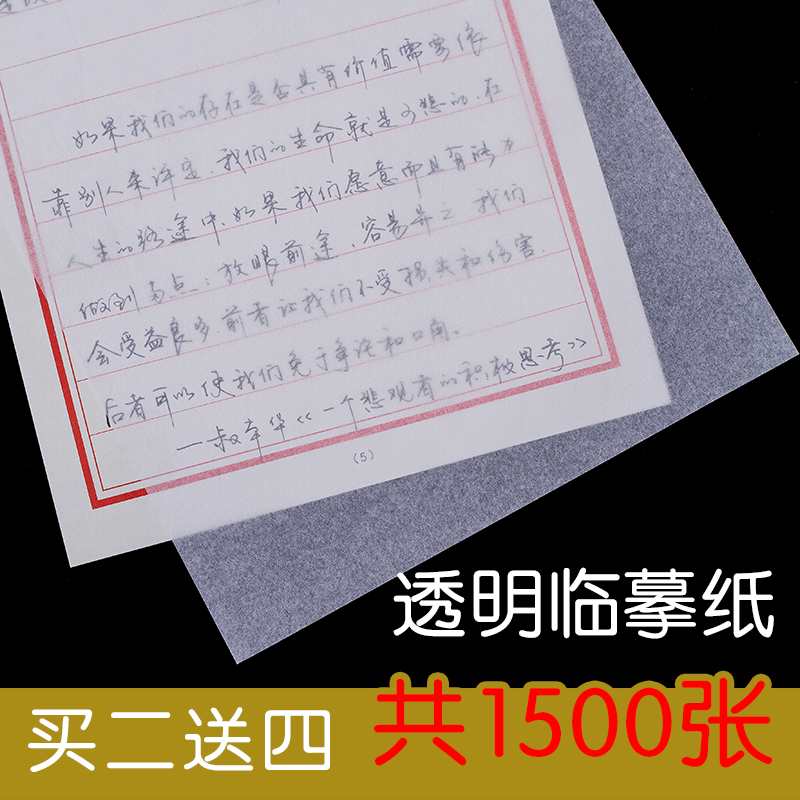 如果我们的存在是否具有价值需要依
靠别人来评定，我们的生命就是可悲的，在
人生的路途中，如果我们愿意而且有能力
做到两点：放眼前途，容易弃之，我们
会受益良多，前者让我们不受损失和伤害，
后者可以使我们免于争论和口角。
一叔本华《一个悲观者的积极思考》
(5)
透明临摹纸
买二送四
共1500张